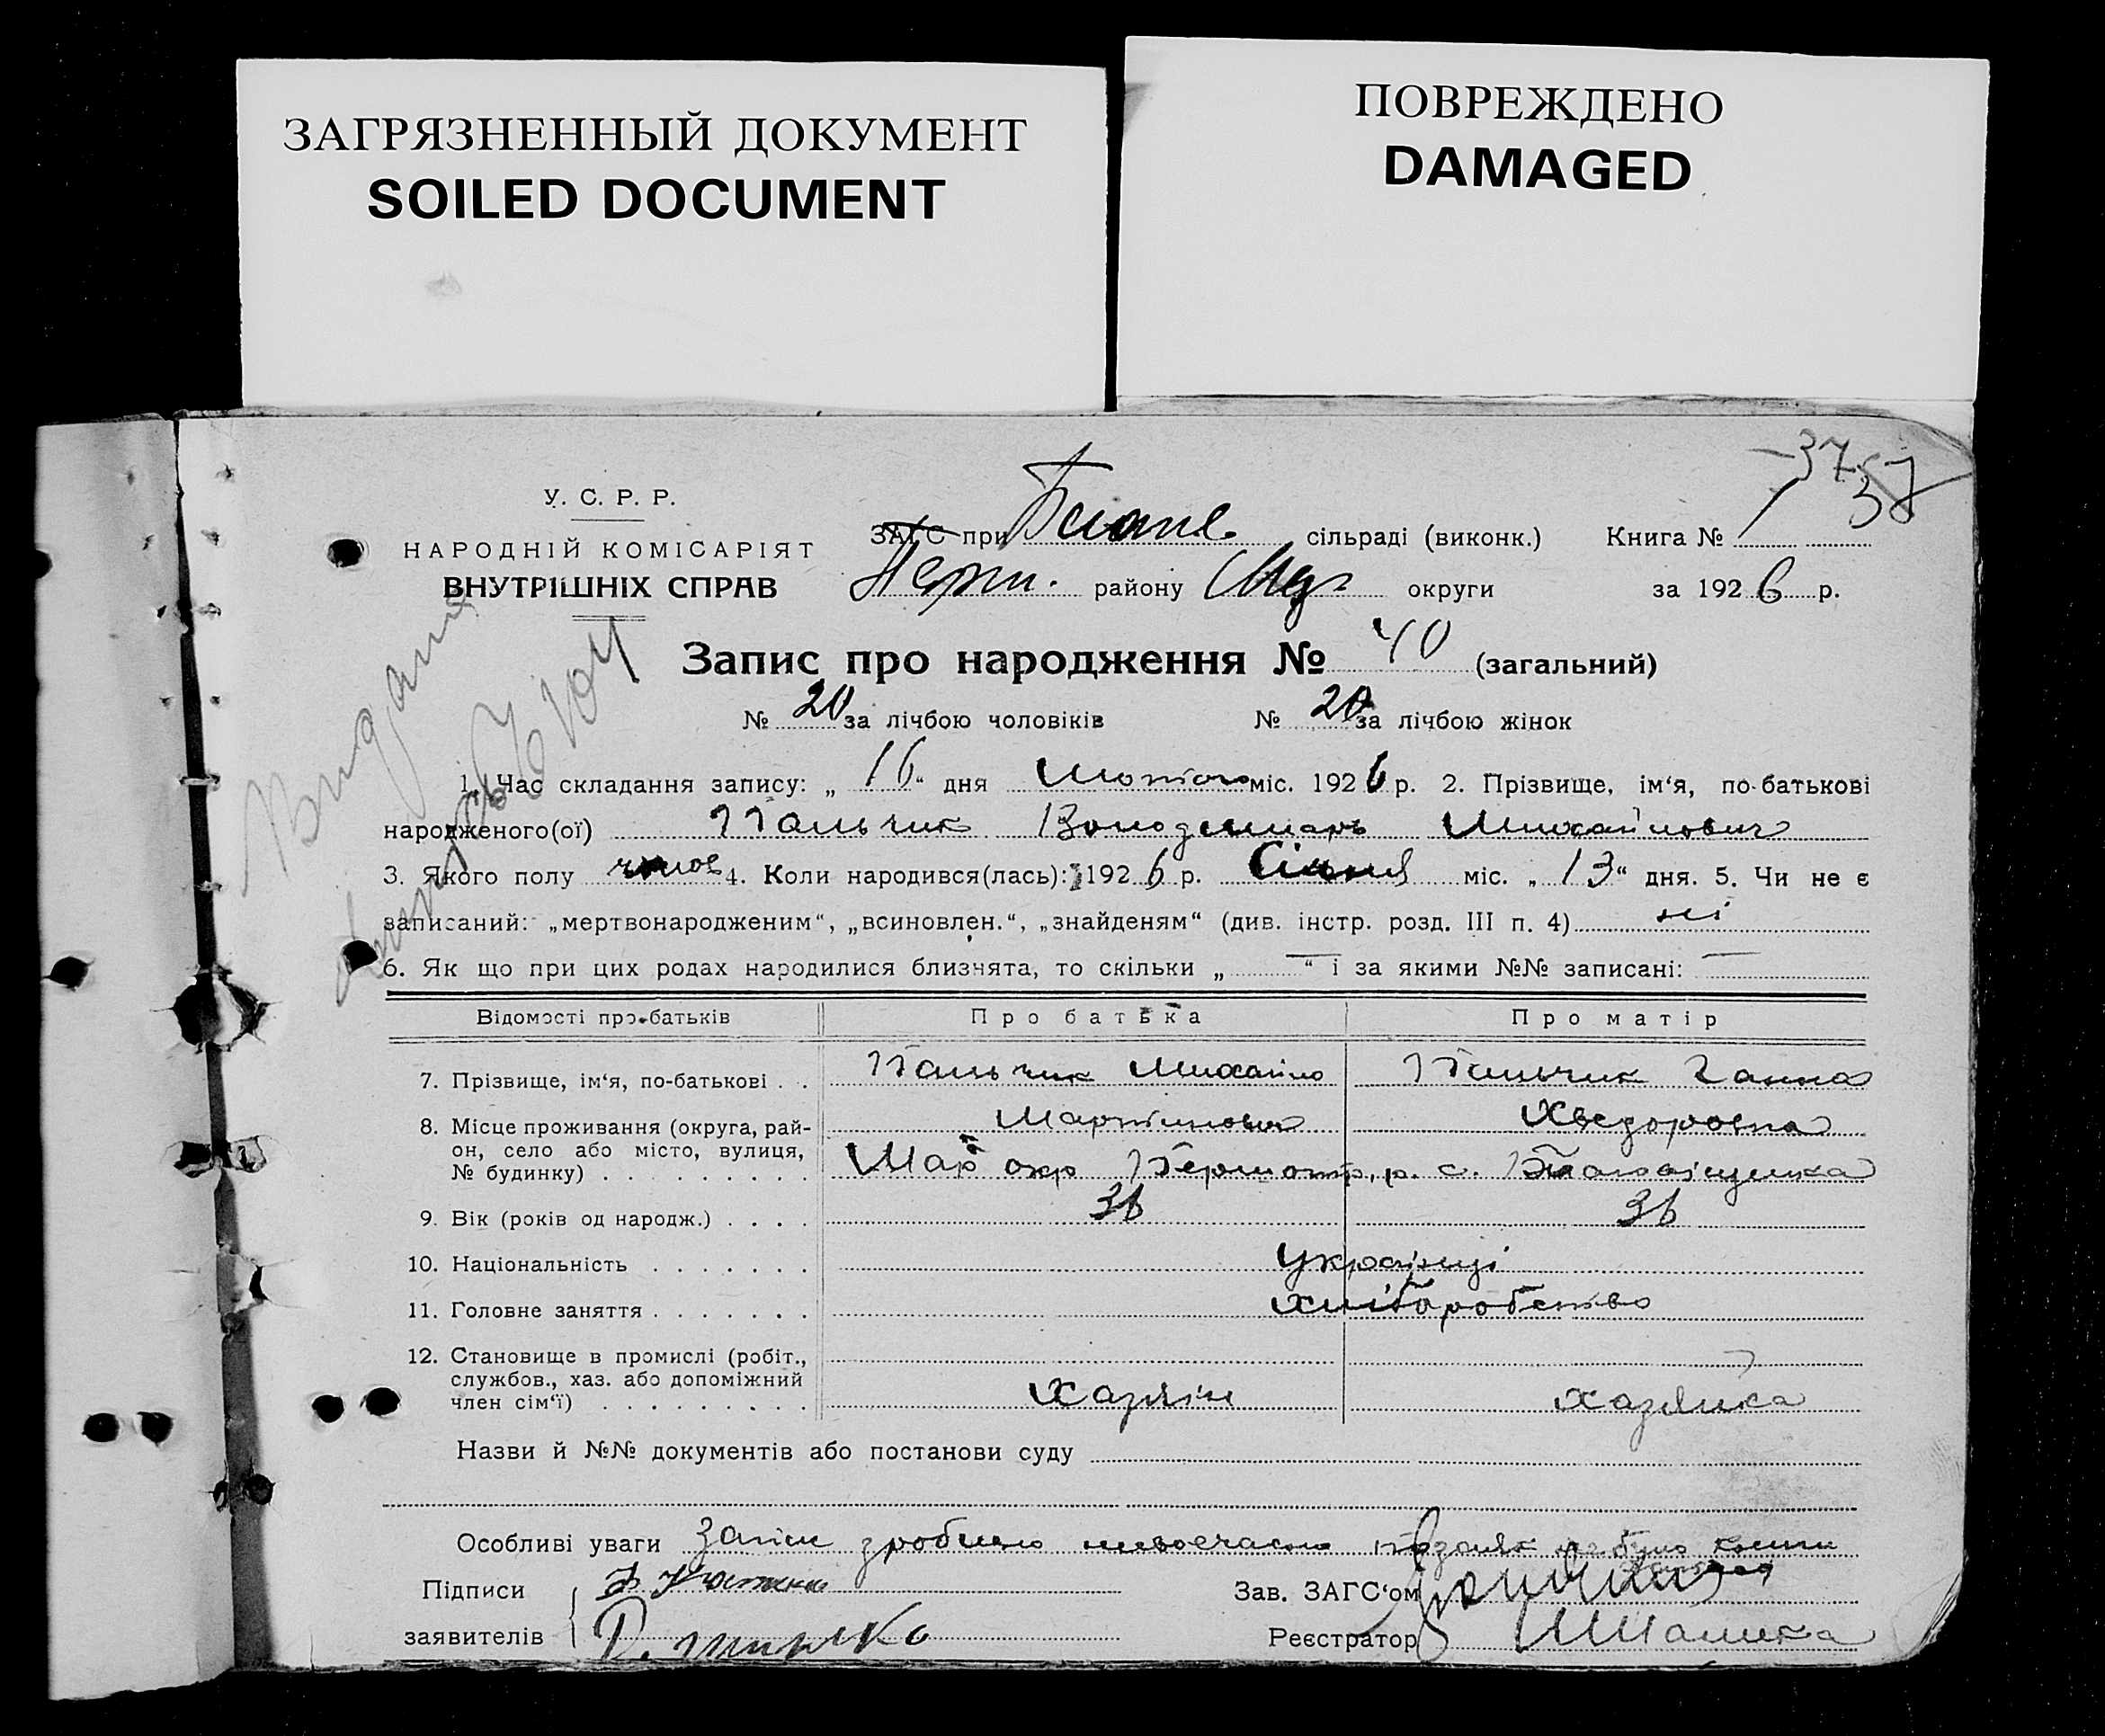 ЗАГРЯЗНЕННЫЙ ДОКУМЕНТ
SOILED DOCUMENT
ПОВРЕЖДЕНО
DAMAGED
37
37
У. С. Р. Р.
НАРОДНІЙ КОМІСАРІЯТ
ВНУТРІШНІХ СПРАВ
ЗАГС при сільраді (виконк.) Книга № 1
району округи за 1926 р.
Запис про народження № 40 (загальний)
№ 20 за лічбою чоловіків № 20 за лічбою жінок
1. Час складання запису: „16“ дня Лютого міс. 1926 р. 2. Прізвище, ім‘я, по-батькові
народженого(ої) Пальчик Володимирь Михайлович
3. Якого полу чолов 4. Коли народився(лась): 1926 р. Січня міс. „13“ дня. 5. Чи не є
записаний: „мертвонародженим“, „всиновлен.“, „знайденям“ (див. інстр. розд. III п. 4) ні
6. Як що при цих родах народилися близнята, то скільки „—“ і за якими №№ записані: —
Відомості про батьків Про батька Про матір
7. Прізвище, ім‘я, по-батькові . . Пальчик Михайло Пальчик Ганна
Мартинович Хведоровна
8. Місце проживання (округа, рай-
он, село або місто, вулиця,
№ будинку) . . . . . . . . . окр р. с.
9. Вік (років од народж.) . . . . 36 36
10. Національність . . . . . . . українці
11. Головне заняття . . . . . . . хліборобство
12. Становище в промислі (робіт.,
службов., хаз. або допоміжний
член сім‘ї) . . . . . . . . . Хазяїн хазяйка
Назви й №№ документів або постанови суду
Особливі уваги Запис зроблено невоєчасно позаяк не було книги
Підписи
заявителів
Зав. ЗАГС‘ом
Реєстратор